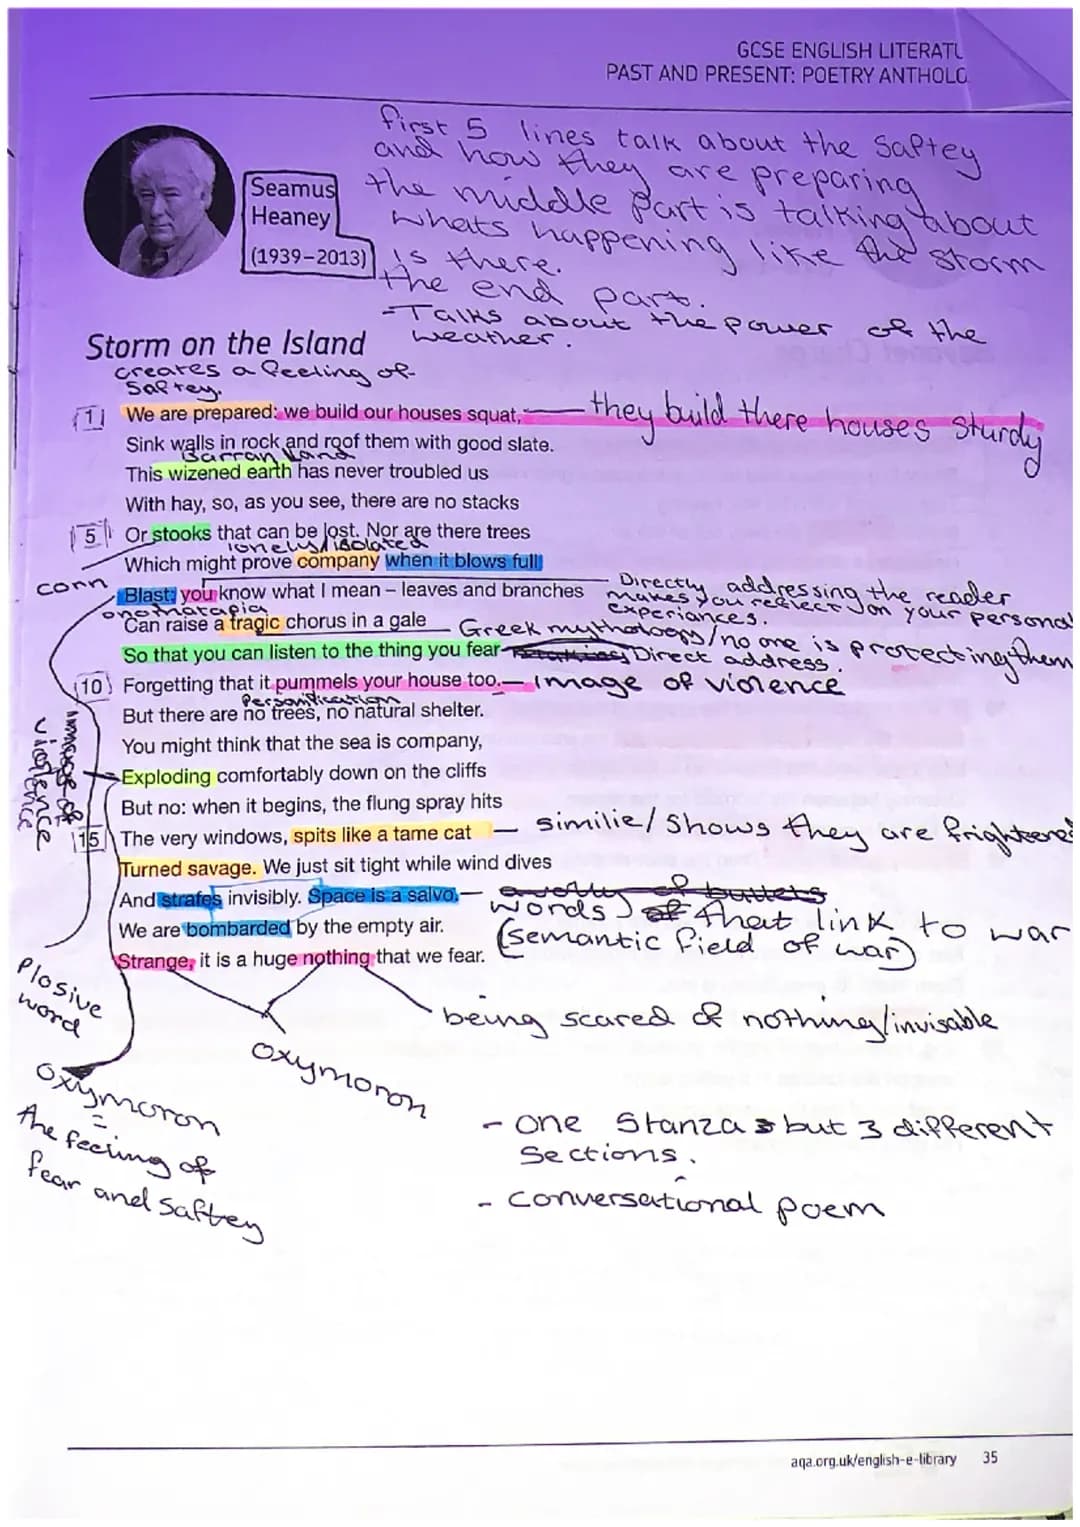 GCSE ENGLISH LITERATU
PAST AND PRESENT: POETRY ANTHOLO
Seamus
Heaney
(1939–2013)
first 5 lines talk about the Saftey
and how they are preparing
the middle part is talking about
whats happening like the storm
is there.
the end part.
- Talks about the power of the
weather.
Storm on the Island
creates a feeling of
Saftey.
1 We are prepared: we build our houses squat,
they build there houses sturdy
Sink walls in rock and roof them with good slate.
Barran Land
This wizened earth has never troubled us
With hay, so, as you see, there are no stacks
5 Or stooks that can be lost. Nor are there trees
lonely/isolated
Which might prove company when it blows full
corn
Blast: you know what I mean – leaves and branches
Directly addressing the reader
makes you reflect on your personal
experiances.
onomatapia
Can raise a tragic chorus in a gale
Greek mythology/no one is protecting them
So that you can listen to the thing you fear
Direct address.
10 Forgetting that it pummels your house too.
image of violence
Personification
But there are no trees, no natural shelter.
You might think that the sea is company,
Exploding comfortably down on the cliffs
immage of
violence
But no: when it begins, the flung spray hits
15 The very windows, spits like a tame cat
similie/Shows they are frightened
Turned savage. We just sit tight while wind dives
And strafes invisibly. Space is a salvo.
a volly of bullets
words of that link to war
We are bombarded by the empty air.
(semantic field of war)
Strange, it is a huge nothing that we fear.
Plosive
word
being scared of nothing/invisable
oxymoron
oxymoron
=
the feeling of
fear and saftey
- one Stanza but 3 different
Sections.
- conversational poem
aqa.org.uk/english-e-library 35